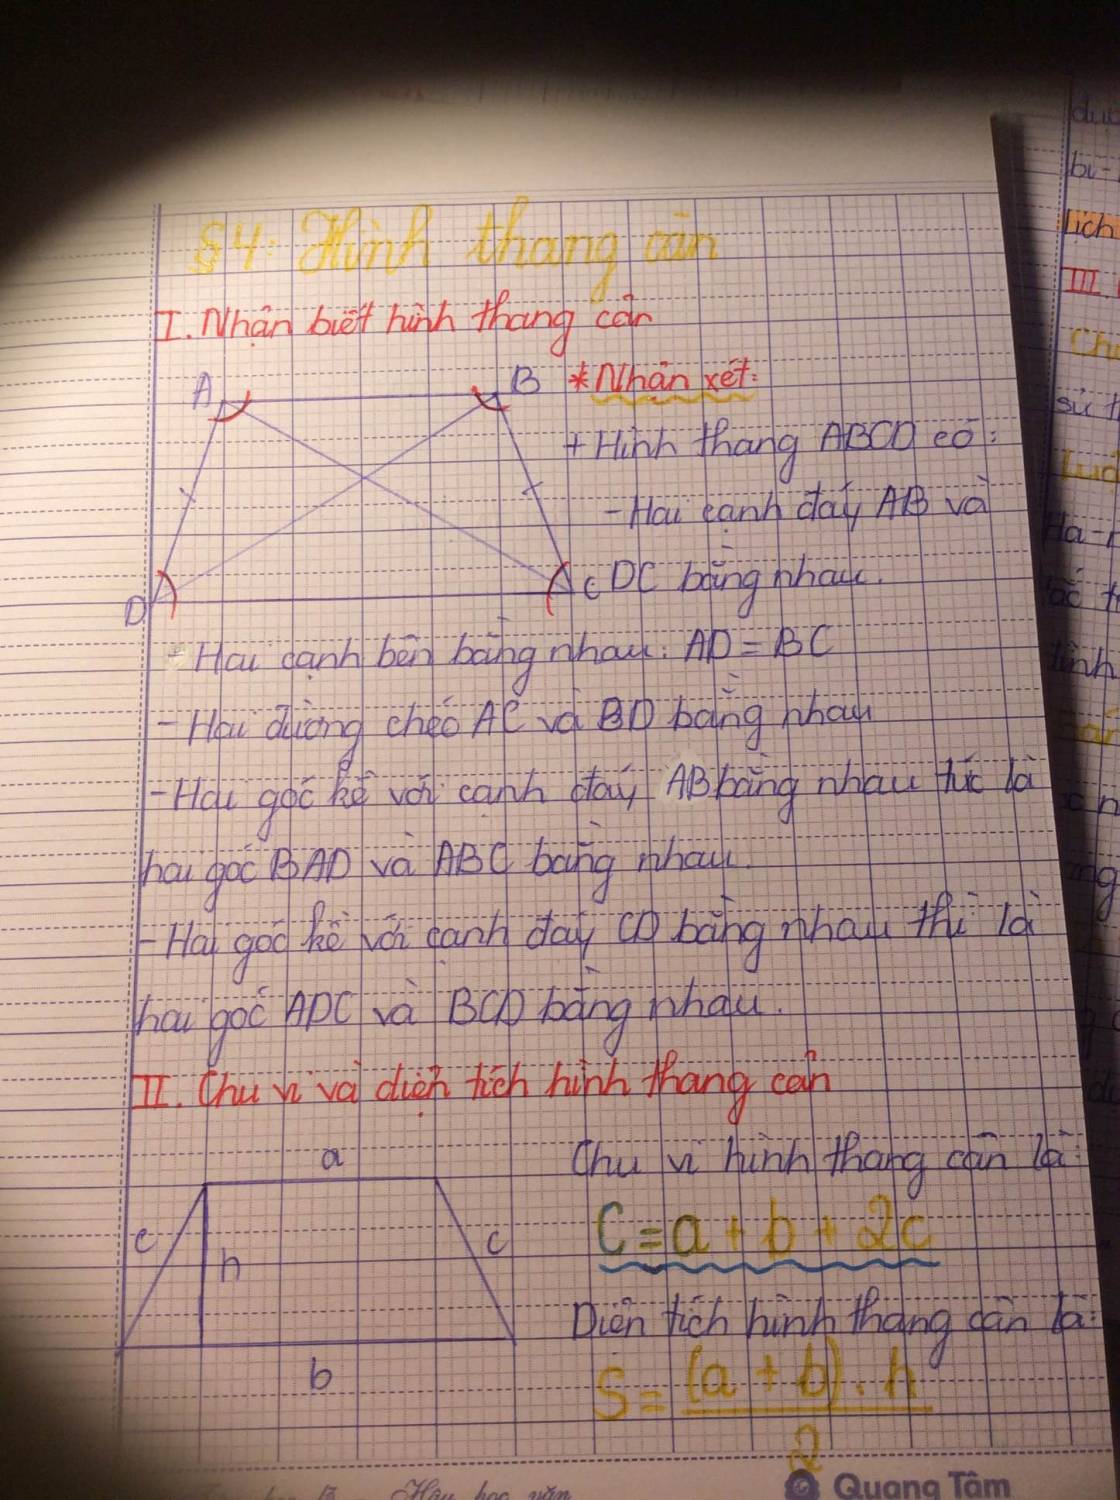 §4: Hình thang cân
I. Nhận biết hình thang cân
A
B
*Nhận xét:
+ Hình thang ABCD có:
- Hai cạnh đáy AB và
D
C
DC bằng nhau.
- Hai cạnh bên bằng nhau: AD = BC
- Hai đường chéo AC và BD bằng nhau
- Hai góc kề với cạnh đáy AB bằng nhau tức là
hai góc BAD và ABC bằng nhau.
- Hai góc kề với cạnh đáy CD bằng nhau thì là
hai góc ADC và BCD bằng nhau.
II. Chu vi và diện tích hình thang cân
a
c
h
c
b
Chu vi hình thang cân là:
C = a + b + 2c
Diện tích hình thang cân là:
S = (a + b) . h
2
Hậu học văn
Quang Tâm
bi-
III.